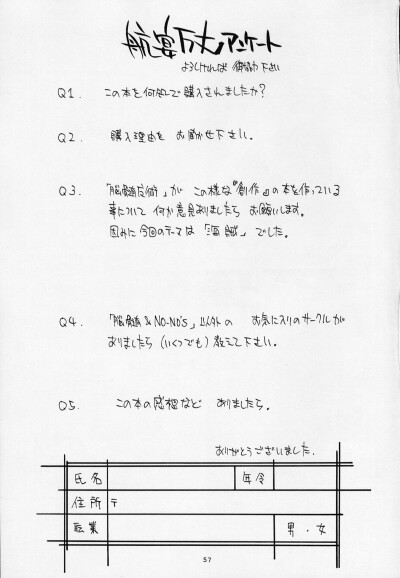 航宴万丈アンケート
よろしければ御協力下さい
Q1. この本を何処で購入されましたか?
Q2. 購入理由をお聞かせ下さい。
Q3. 「脳髄技術」がこの様な『創作』の本を作っている
事について何か意見ありましたらお願いします。
因みに今回のテーマは「海賊」でした。
Q4. 「脳髄&NO-NO'S」以外のお気に入りのサークルが
ありましたら(いくつでも)教えて下さい。
Q5. この本の感想などありましたら。
ありがとうございました.
氏名 年令
住所 〒
職業 男・女
57